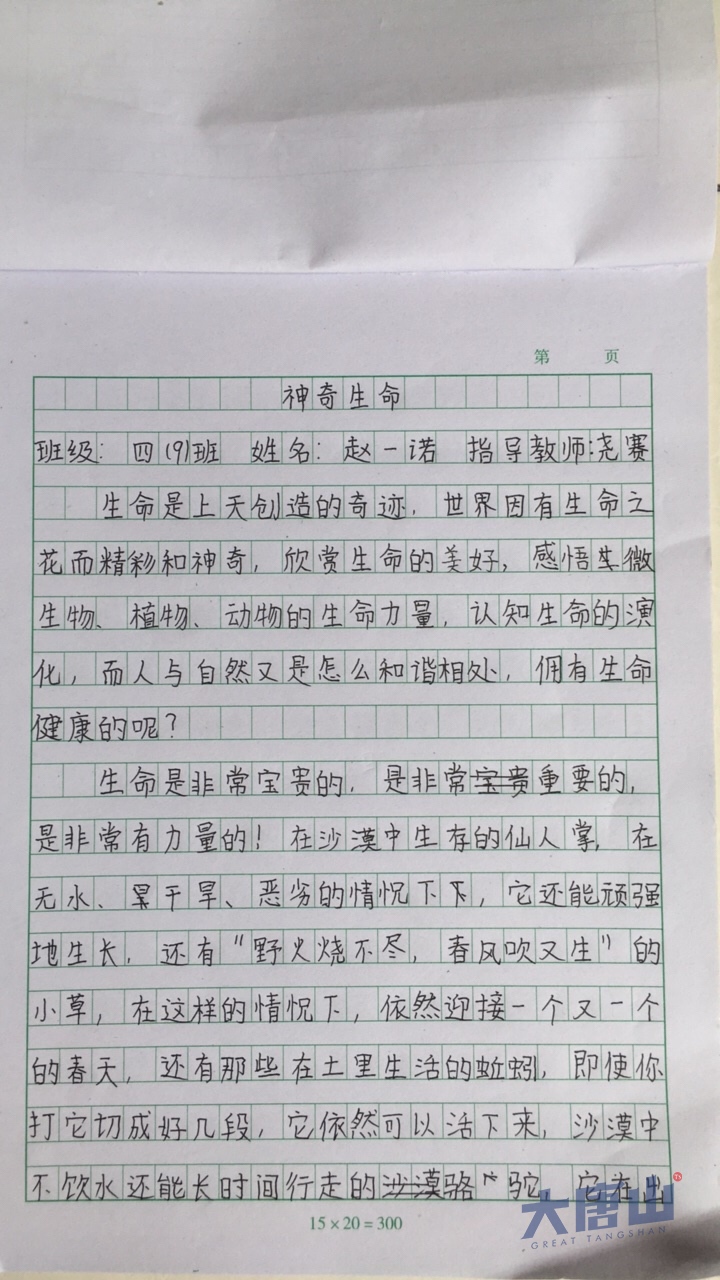 第 页
神奇生命
班级：四(9)班 姓名：赵一诺 指导教师：浇赛
生命是上天创造的奇迹，世界因有生命之
花而精彩和神奇，欣赏生命的美好，感悟生微
生物、植物、动物的生命力量，认知生命的演
化，而人与自然又是怎么和谐相处，佣有生命
健康的呢？
生命是非常宝贵的，是非常宝贵重要的，
是非常有力量的！在沙漠中生存的仙人掌，在
无水、旱干旱、恶劣的情况下下，它还能顽强
地生长，还有“野火烧不尽，春风吹又生”的
小草，在这样的情况下，依然迎接一个又一个
的春天，还有那些在土里生活的蚯蚓，即使你
打它切成好几段，它依然可以活下来，沙漠中
不饮水还能长时间行走的沙漠骆驼，它在出
15×20=300
大唐山
GREAT TANGSHAN